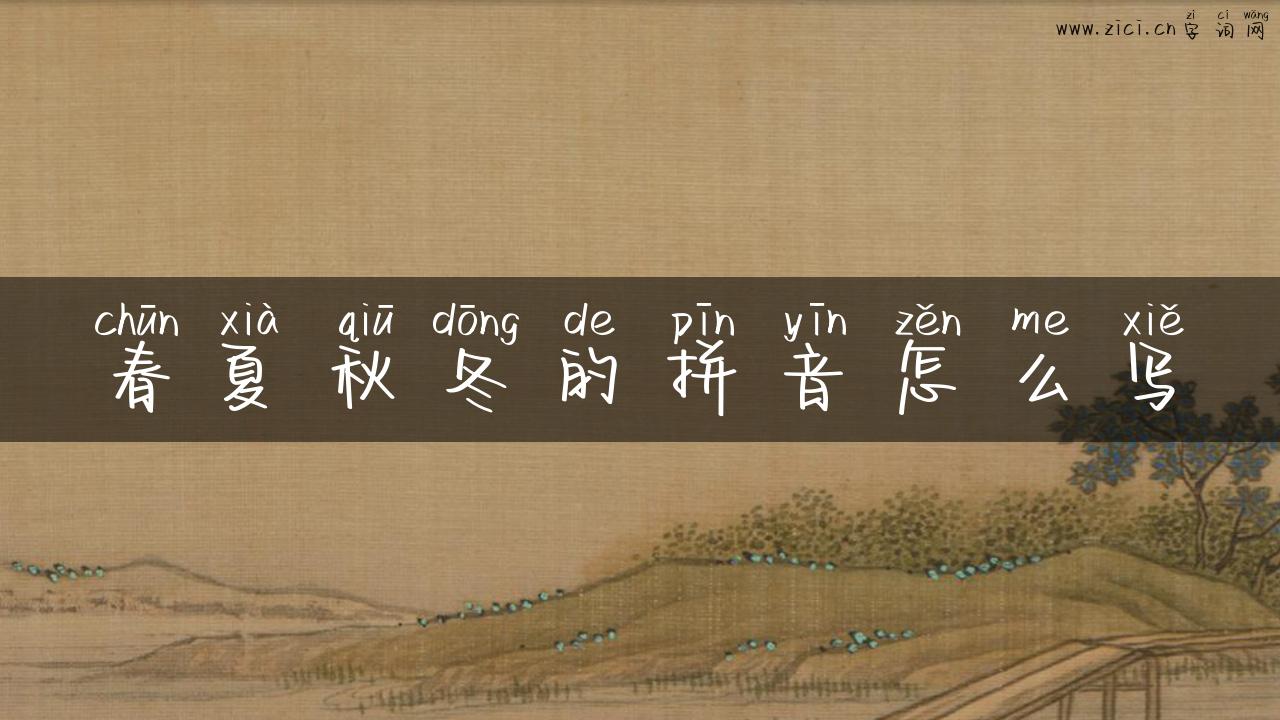 zi ci wǎng
www.zici.cn字词网
chūn xià qiū dōng de pīn yīn zěn me xiě
春夏秋冬的拼音怎么写